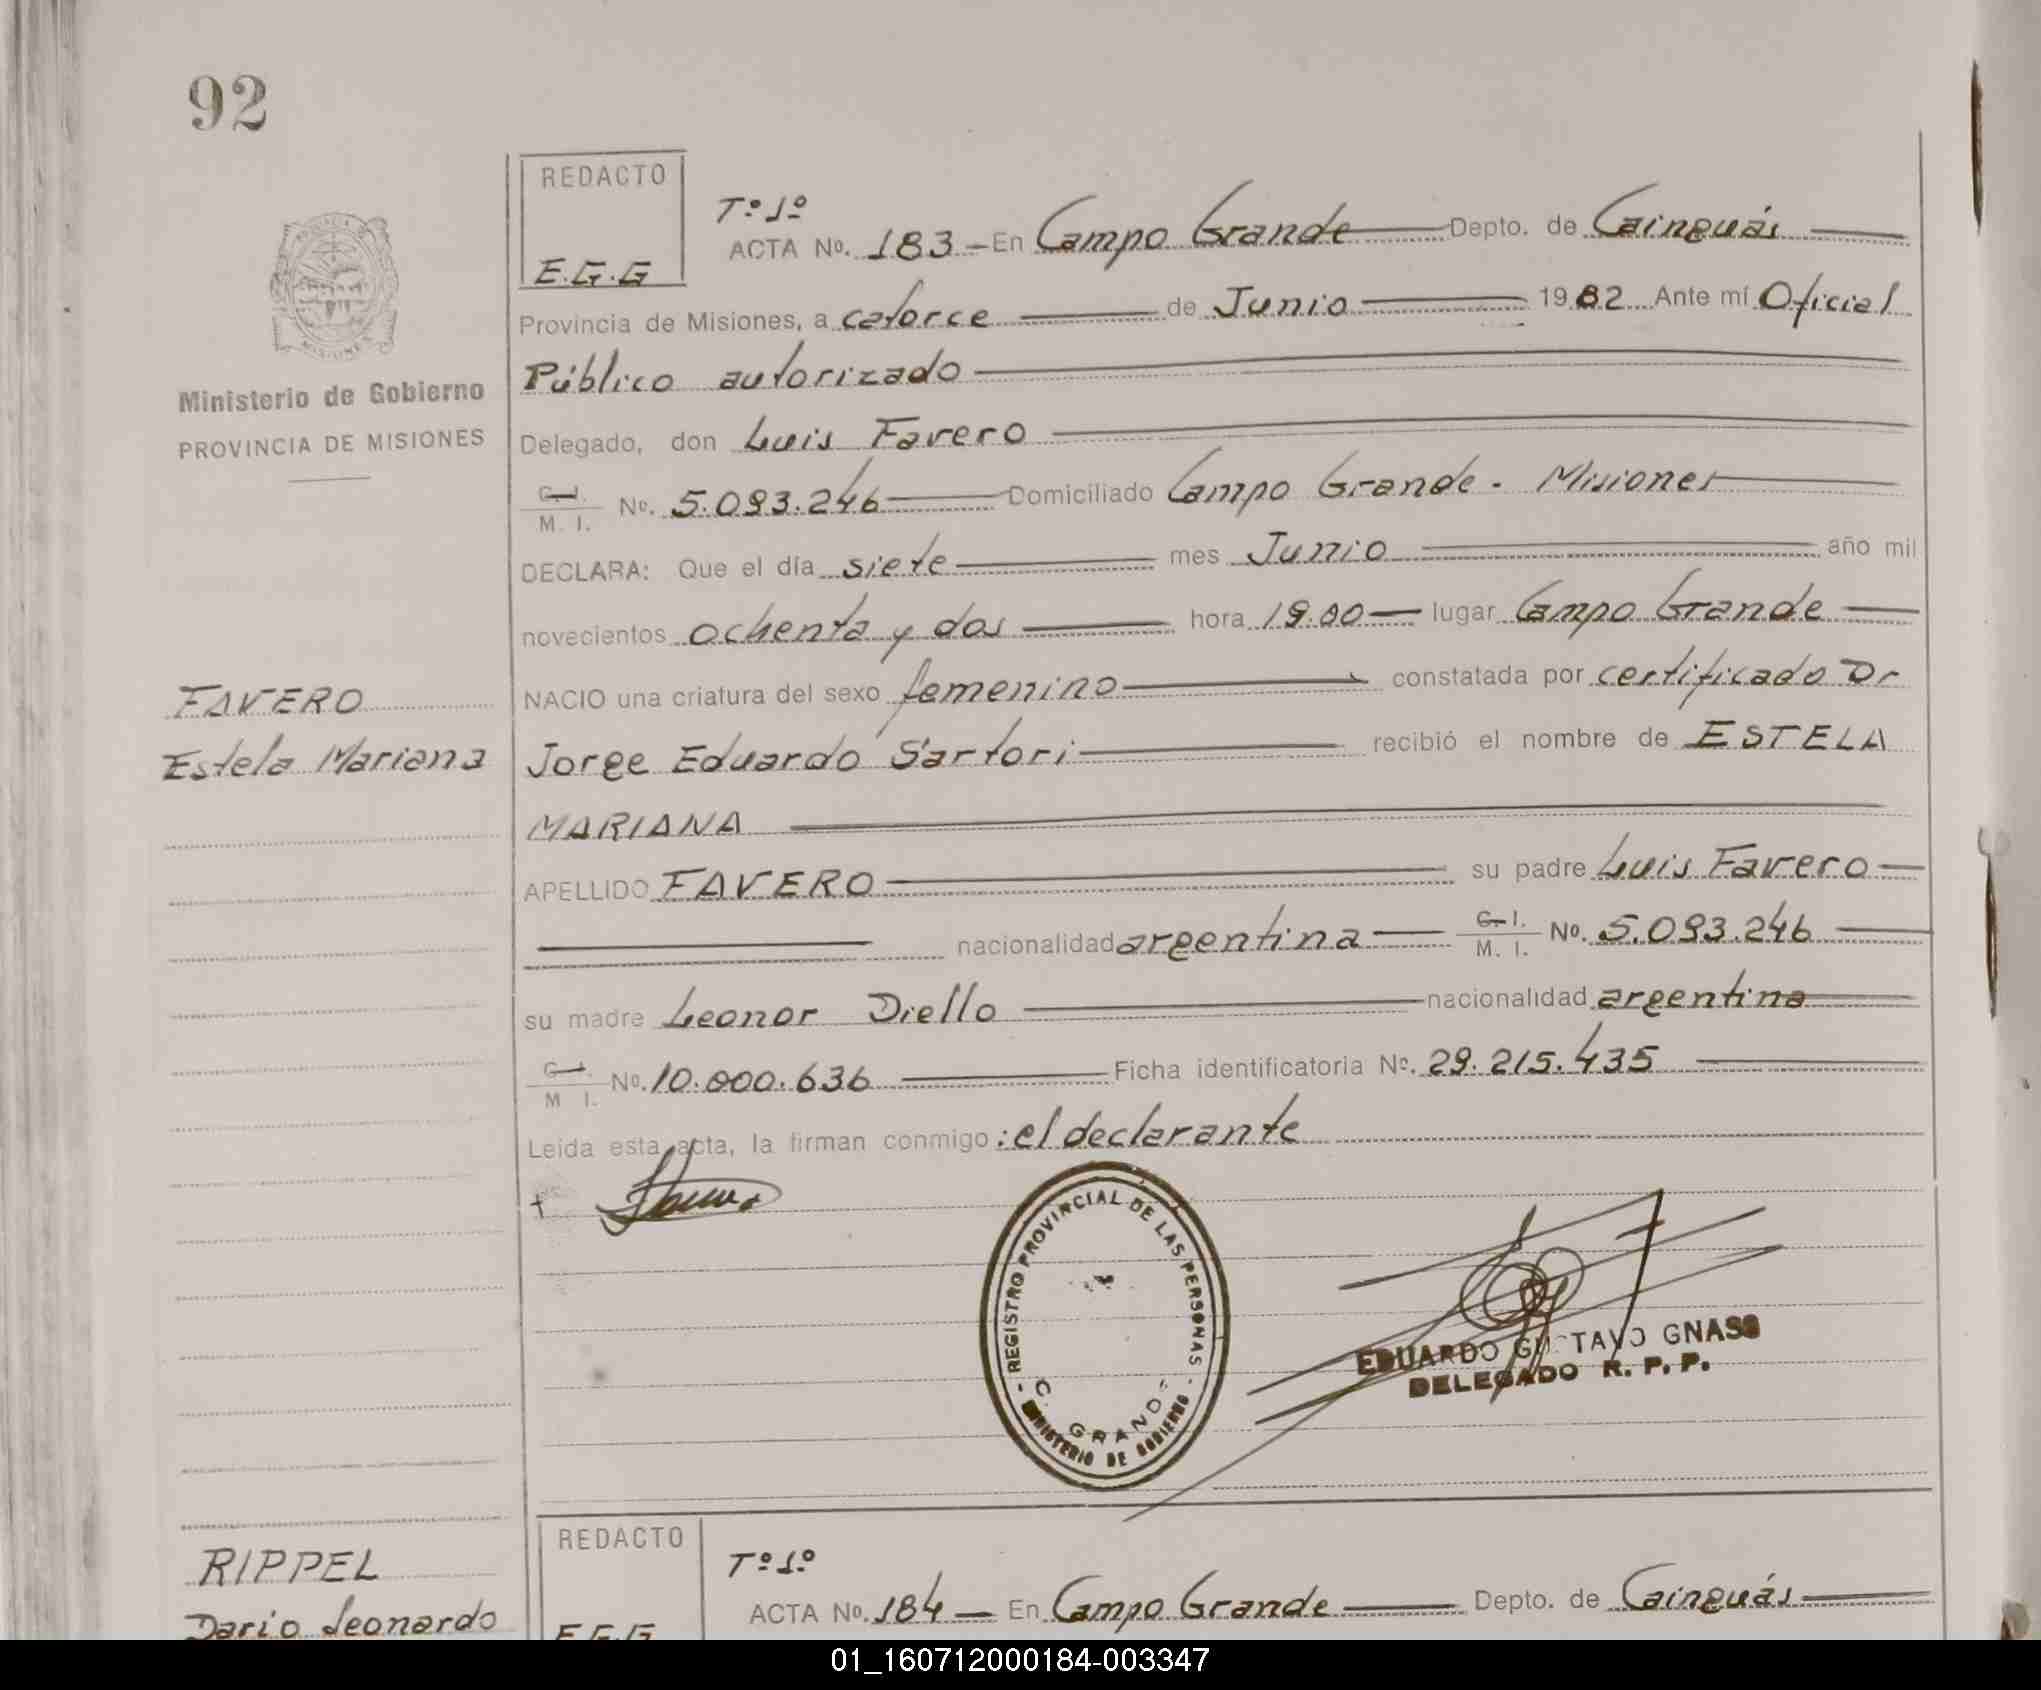 92
REDACTO
E.G.G
PROVINCIA DE
MISIONES
Ministerio de Gobierno
PROVINCIA DE MISIONES
Tº 1º
ACTA Nº. 183 - En Campo Grande Depto. de Cainguás
Provincia de Misiones, a catorce de Junio 1982 Ante mí Oficial
Público autorizado
Delegado, don Luis Favero
C. I. / M. I. No. 5.093.246 Domiciliado Campo Grande - Misiones
DECLARA: Que el día siete mes Junio año mil
novecientos ochenta y dos hora 19.00 lugar Campo Grande
FAVERO
Estela Mariana
NACIO una criatura del sexo femenino constatada por certificado Dr
Jorge Eduardo Sartori recibió el nombre de ESTELA
MARIANA
APELLIDO FAVERO su padre Luis Favero
nacionalidad argentina C. I. / M. I. No. 5.093.246
su madre Leonor Diello nacionalidad argentina
C. I. / M. I. No. 10.000.636 Ficha identificatoria No. 29.215.435
Leída esta acta, la firman conmigo: el declarante
REGISTRO PROVINCIAL DE LAS PERSONAS
C. GRANDE
MINISTERIO DE GOBIERNO
EDUARDO GUSTAVO GNASS
DELEGADO R. P. P.
RIPPEL
Dario Leonardo
REDACTO
E.G.G
Tº 1º
ACTA Nº. 184 - En Campo Grande Depto. de Cainguás
01_160712000184-003347